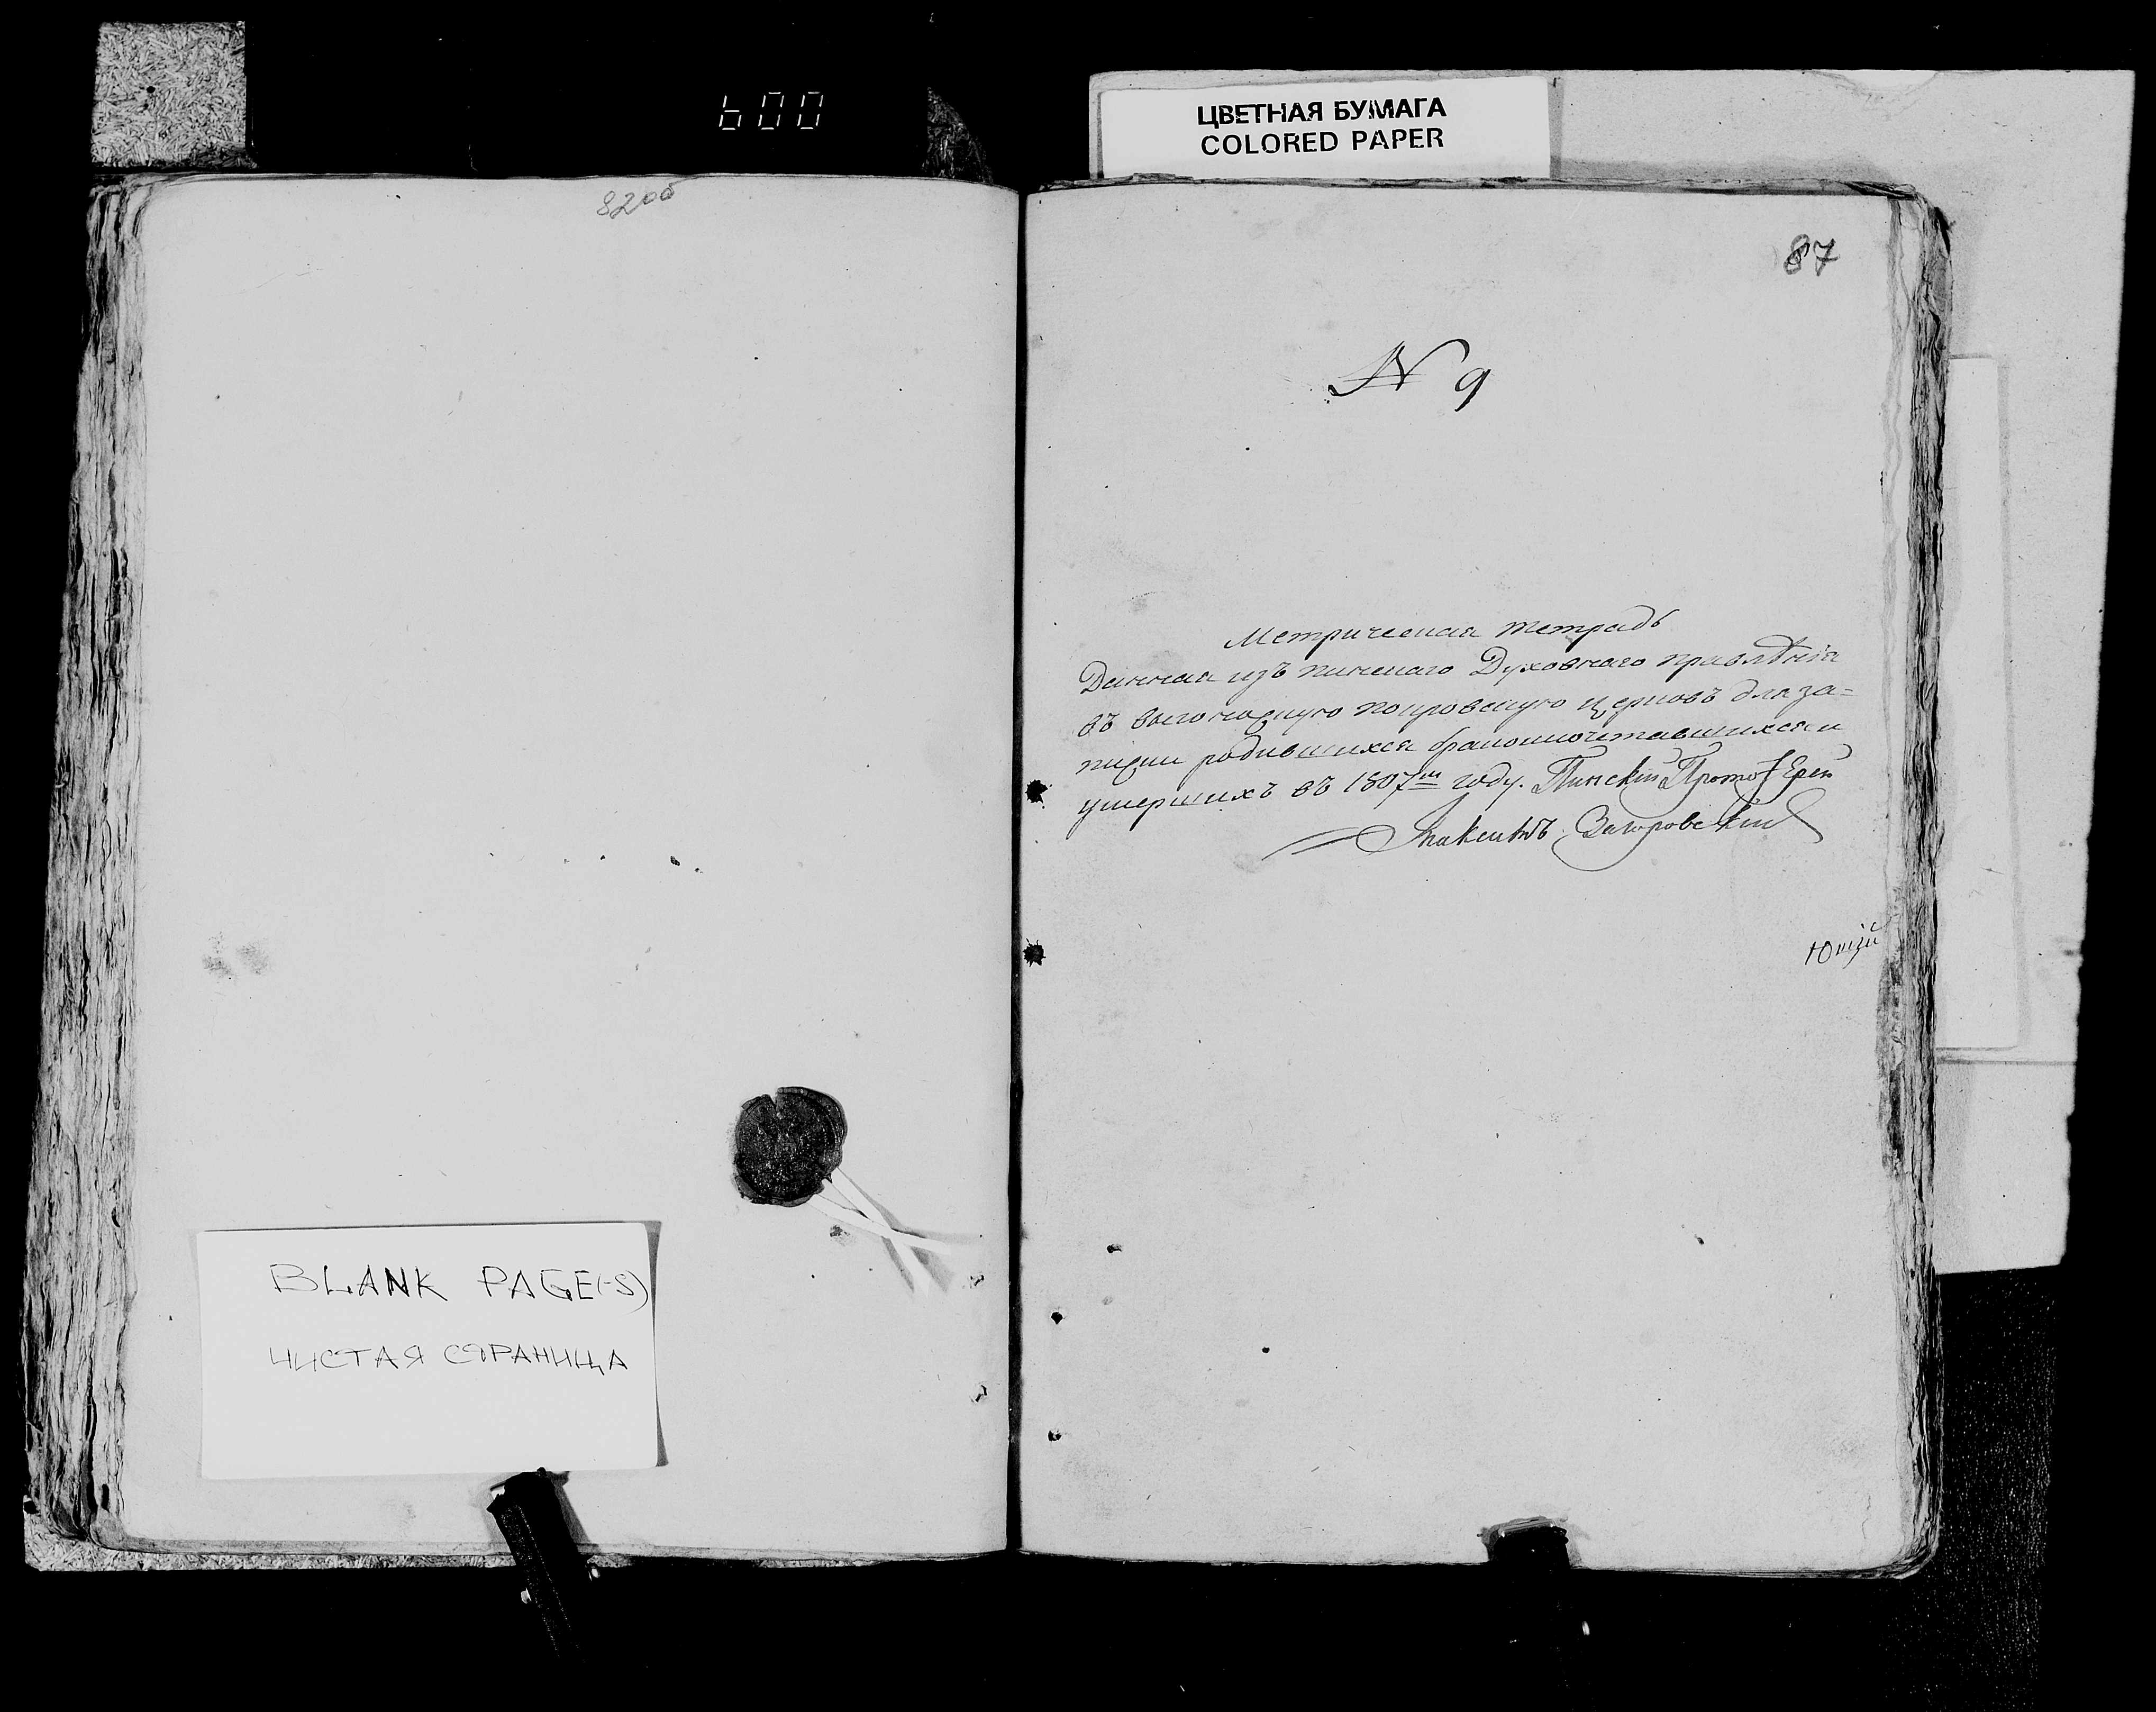 600
ЦВЕТНАЯ БУМАГА
COLORED PAPER
82об
87
№ 9
Метрическая тетрадь
Данная изъ пинскаго Духовнаго правлѣнія
въ покровскую церковъ для за=
писки родившихся бракомсочетавшихся и
умершихъ въ 1807м году. Пинскій Протоіерей
Заторовскій
BLANK PAGE(-S)
ЧИСТАЯ СТРАНИЦА